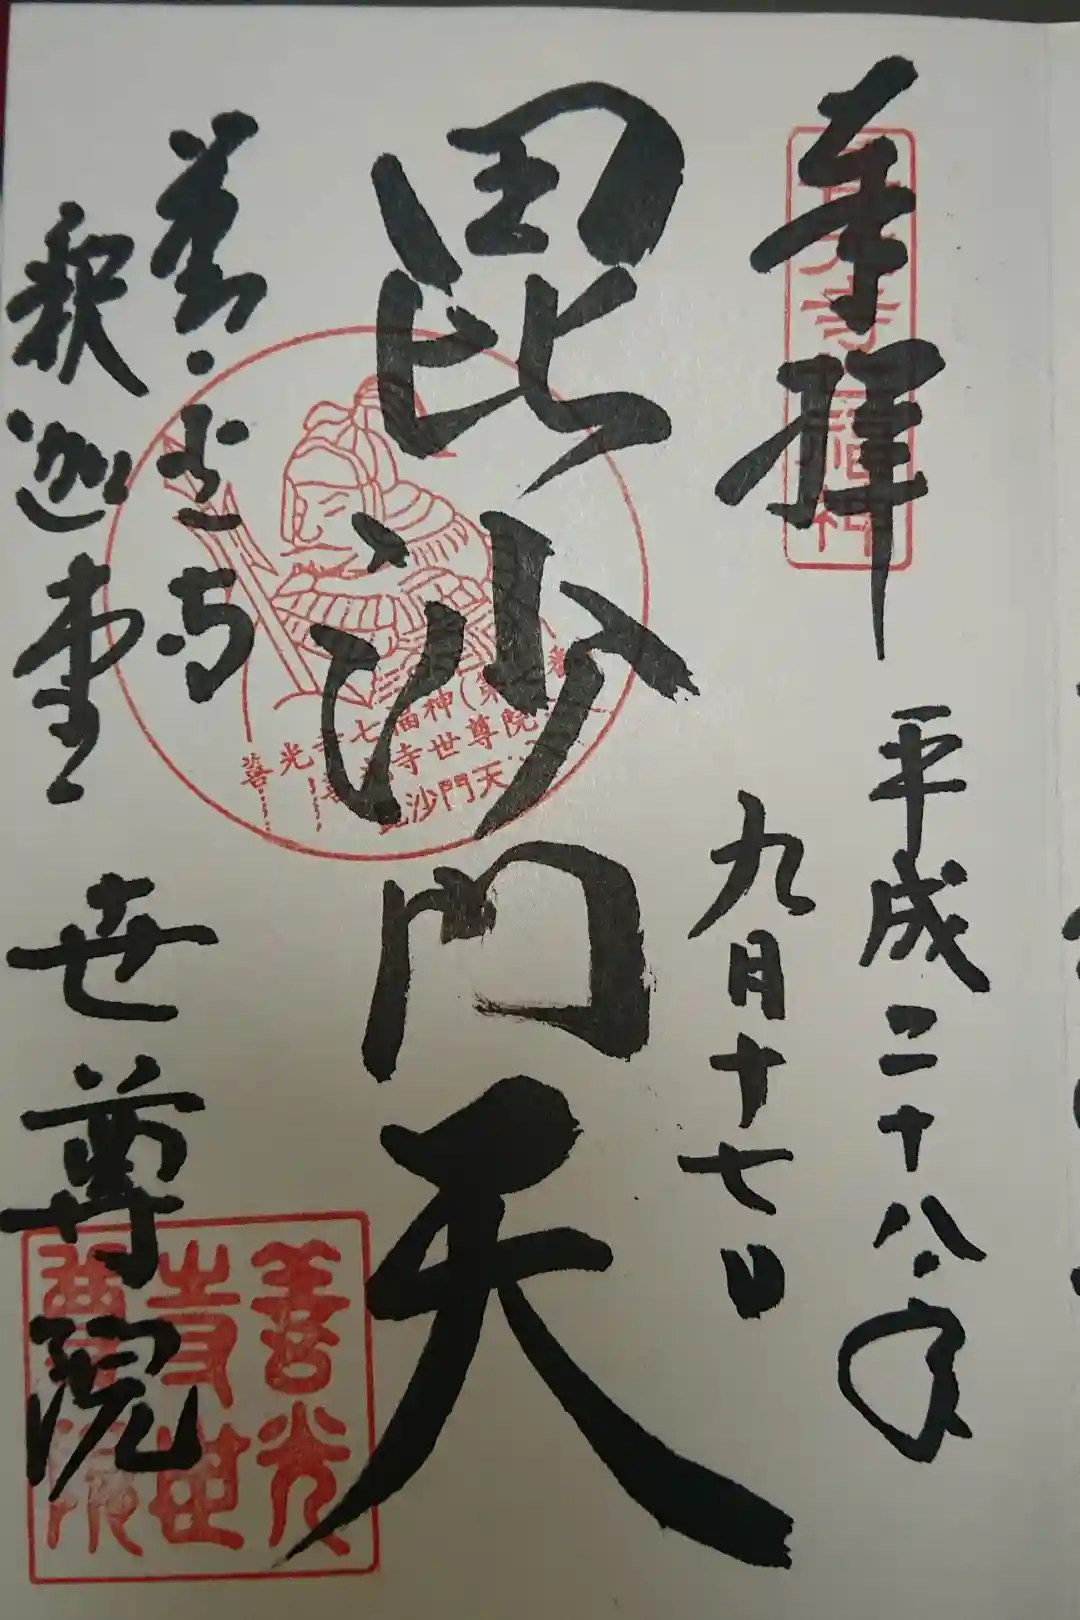 奉拝
平成二十八年
九月十七日
毘沙門天
善光寺
釈迦堂 世尊院
善光寺七福神(第
善光寺世尊院
毘沙門天
善光
寺世
尊院